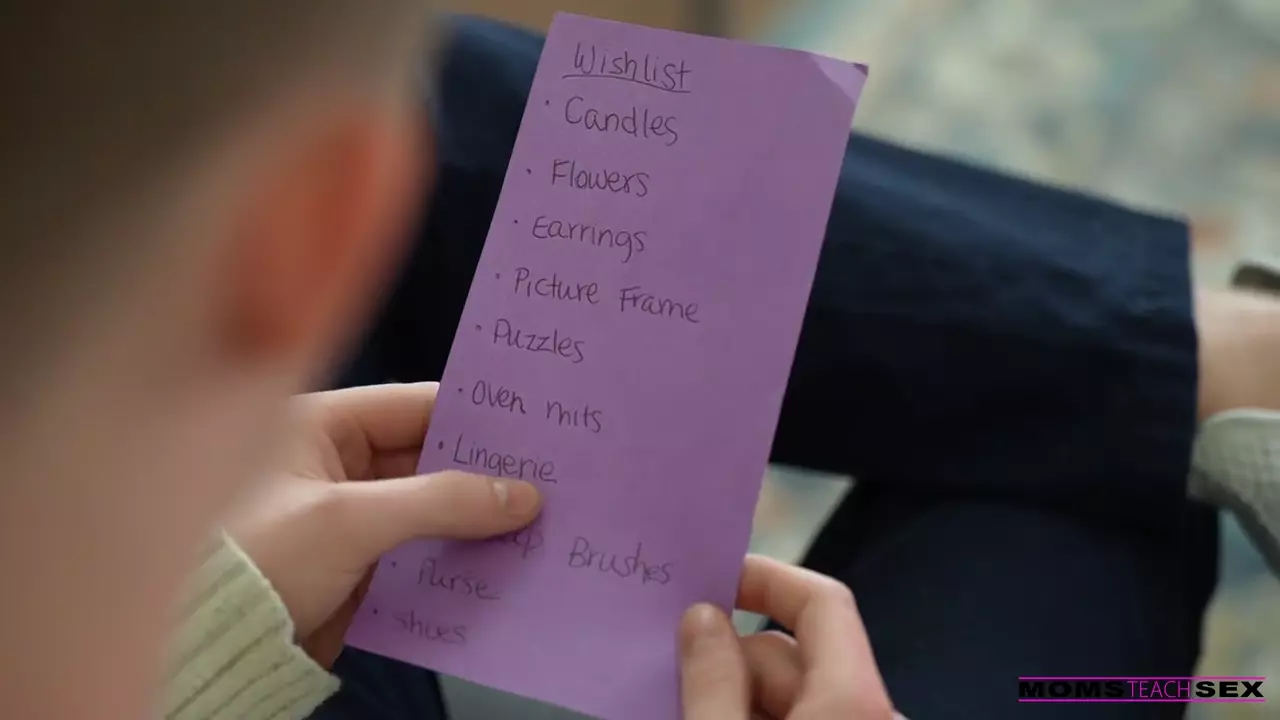 Wishlist
• Candles
• Flowers
• Earrings
• Picture Frame
• Puzzles
• Oven mits
• Lingerie
Brushes
• Purse
• Shoes
MOMSTEACHSEX